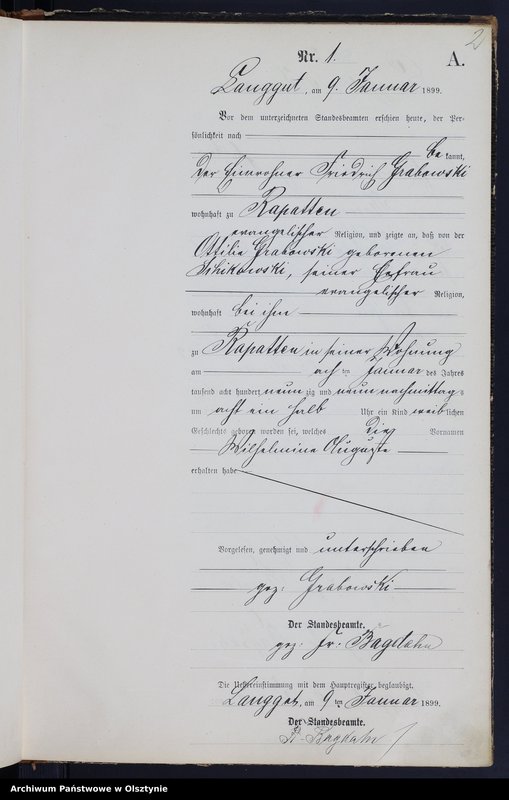 2
Nr. 1. A.
Langgut, am 9. Januar 1899.
Vor dem unterzeichneten Standesbeamten erschien heute, der Per-
sönlichkeit nach
bekannt,
der Einwohner Friedrich Grabowski
wohnhaft zu Rapatten
evangelischer Religion, und zeigte an, daß von der
Ottilie Grabowski geborenen
seiner Ehefrau
evangelischer Religion,
wohnhaft bei ihm
zu Rapatten in seiner Wohnung
am ach ten Januar des Jahres
tausend acht hundert neunzig und neun nachmittags
um acht ein halb Uhr ein Kind weiblichen
Geschlechts geboren worden sei, welches die Vornamen
Wilhelmine Auguste
erhalten habe
Vorgelesen, genehmigt und unterschrieben
gez: Grabowski
Der Standesbeamte.
gez. Fr. Bagdahn
Die Uebereinstimmung mit dem Hauptregister beglaubigt.
Langgut, am 9 ten Januar 1899.
Der Standesbeamte.
Fr. Bagdahn
Archiwum Państwowe w Olsztynie